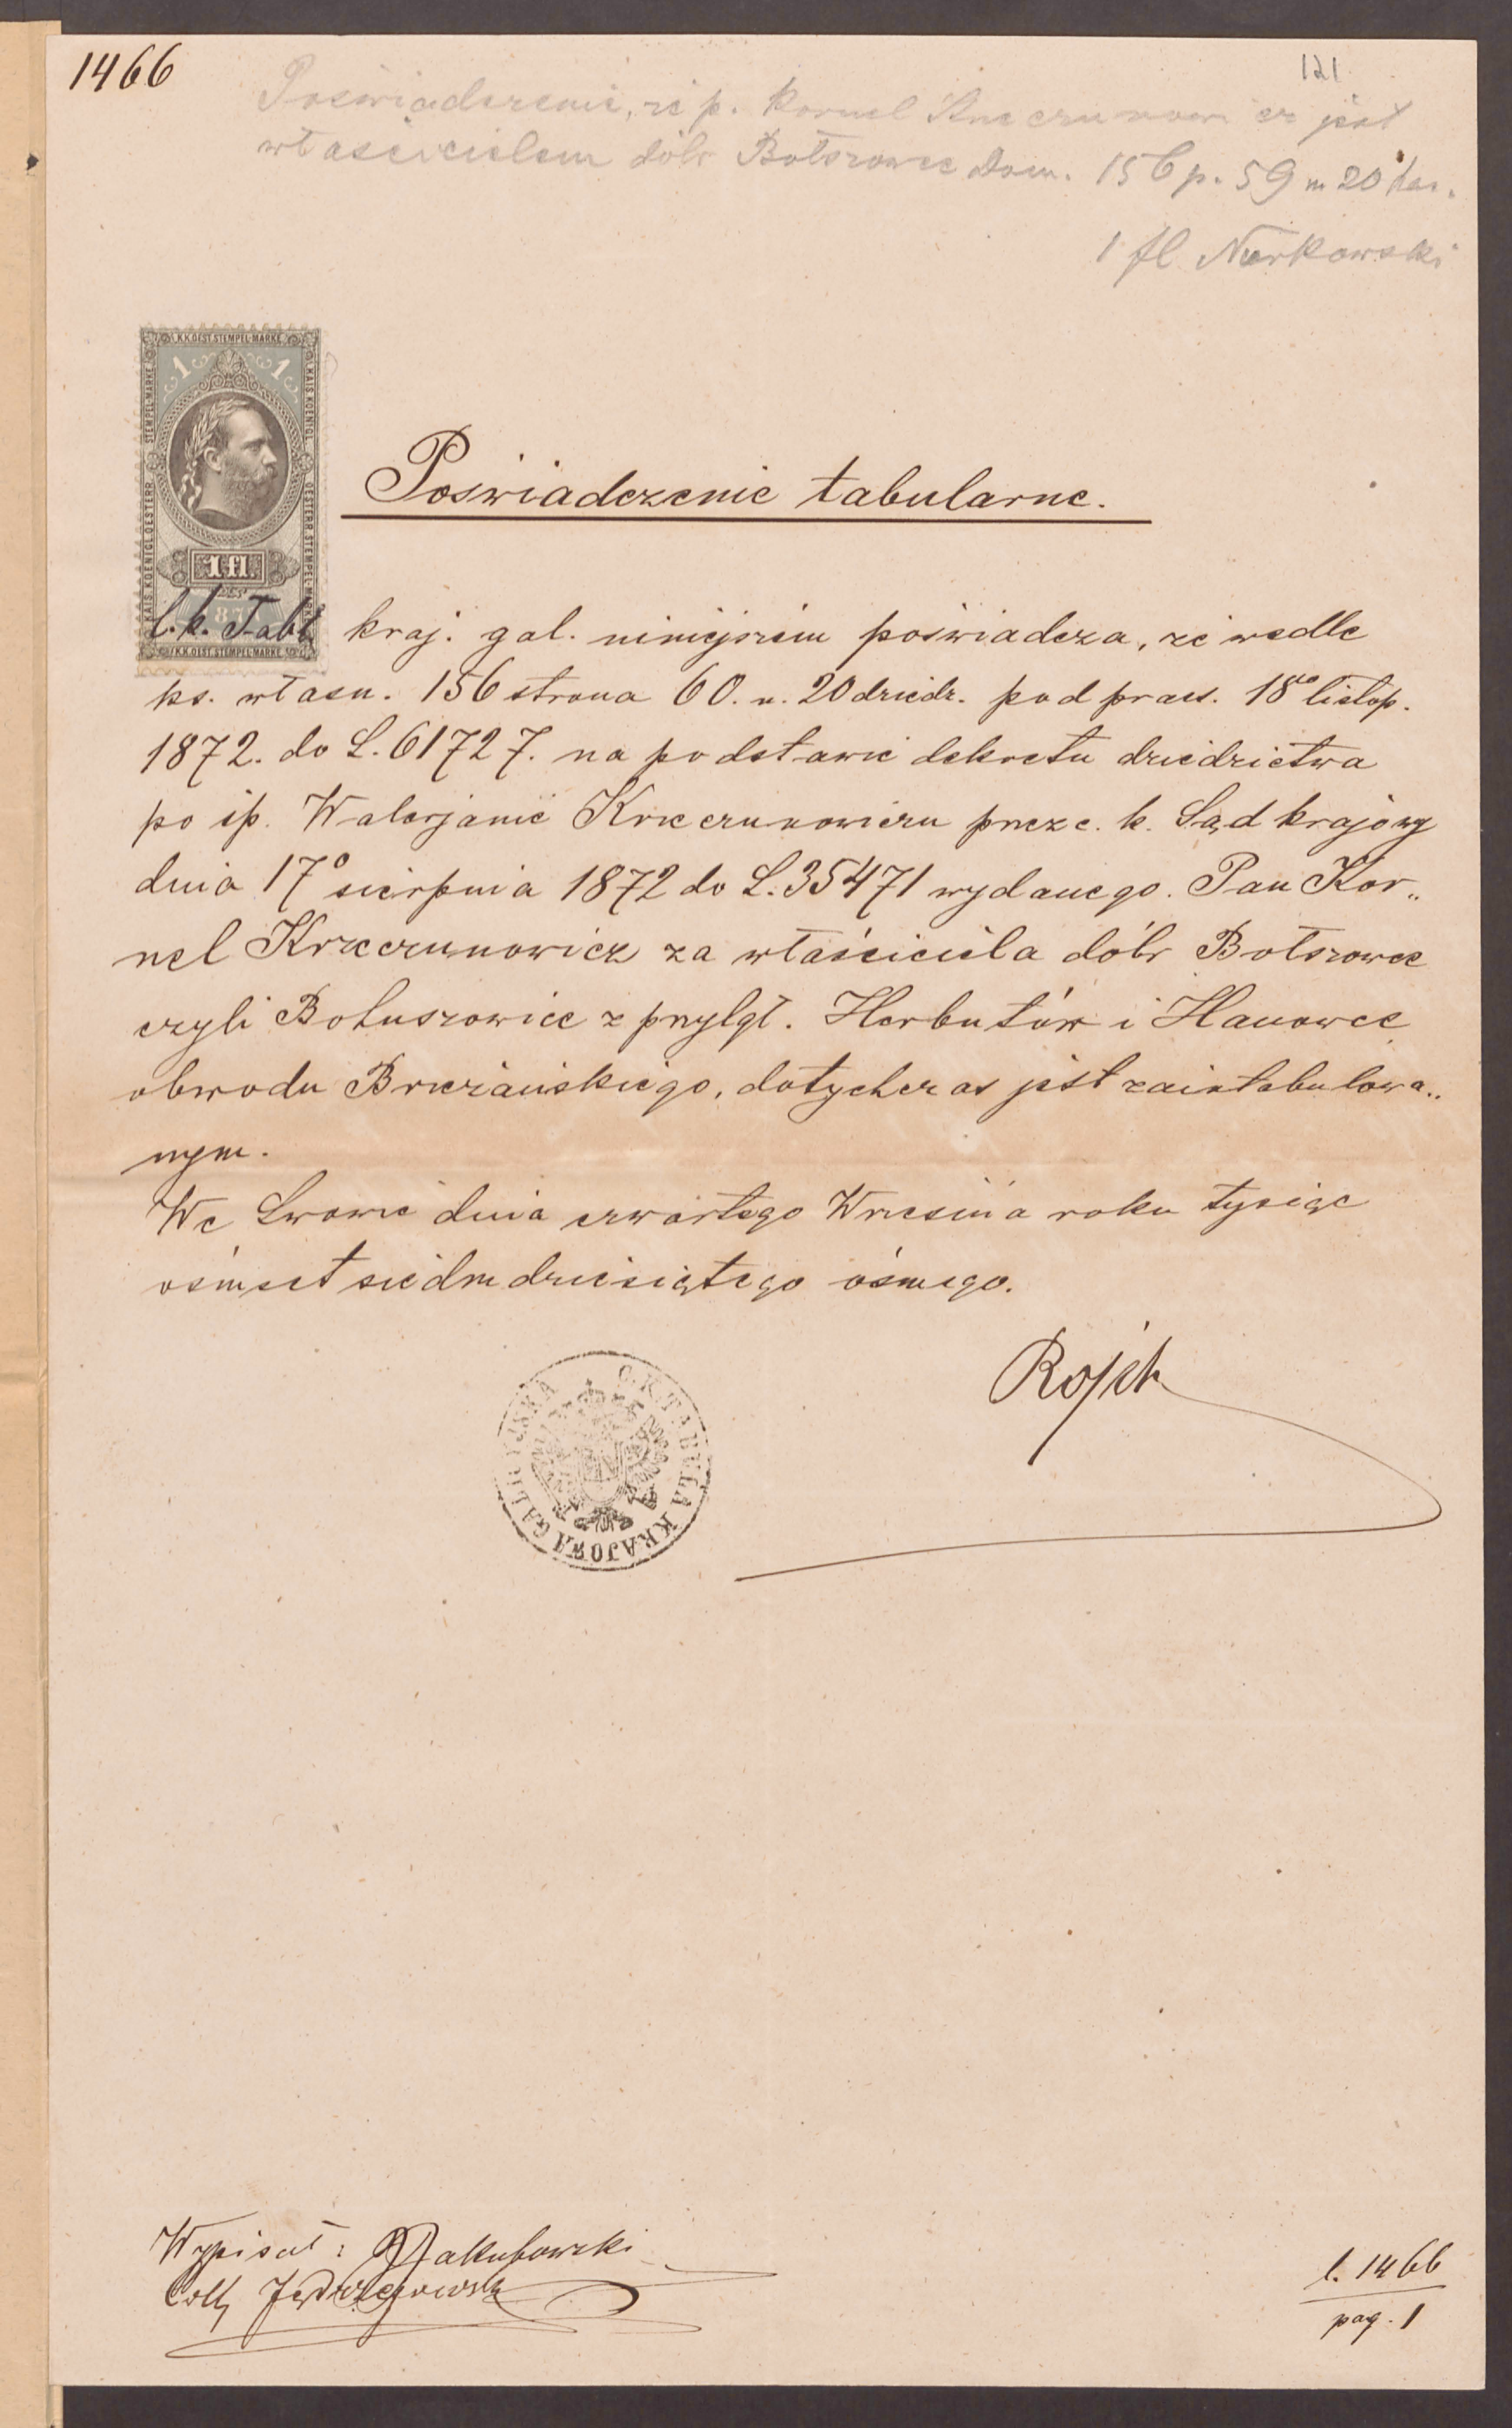 1466
121
Poświadczenie, że p. Kornel Krzeczunowicz jest
właścicielem dóbr Bołszowce Dom. 156 p. 59 n 20 har.
1 fl Nurkowski
K.K. OEST. STEMPEL-MARKE
1 1
1 fl.
Poświadczenie tabularne.
C. k. Tabl. kraj. gal. niniejszem poświadcza, że wedle
ks. własn. 156 strona 60. n. 20 dziedz. pod praes. 18go listop.
1872. do L. 61727. na podstawie dekretu dziedzictwa
po śp. Walerjanie Krzeczunowiczu przez c. k. Sąd krajowy
dnia 17° sierpnia 1872 do L. 35471 wydanego. Pan Kor„
nel Krzeczunowicz za właściciela dóbr Bołszowce
czyli Bołuszowice z przyległ. Herbutów i Hanowce,
obwodu Brzeżańskiego, dotychczas jest zaintabulowa„
nym.
We Lwowie dnia czwartego Września roku tysiąc
ośmset siedmdziesiątego ósmego.
C. K. TABULA KRAJOWA GALICYJSKA
Wypisał: Jakubowski
Coll. Jędrzejowski
l. 1466
pag. 1